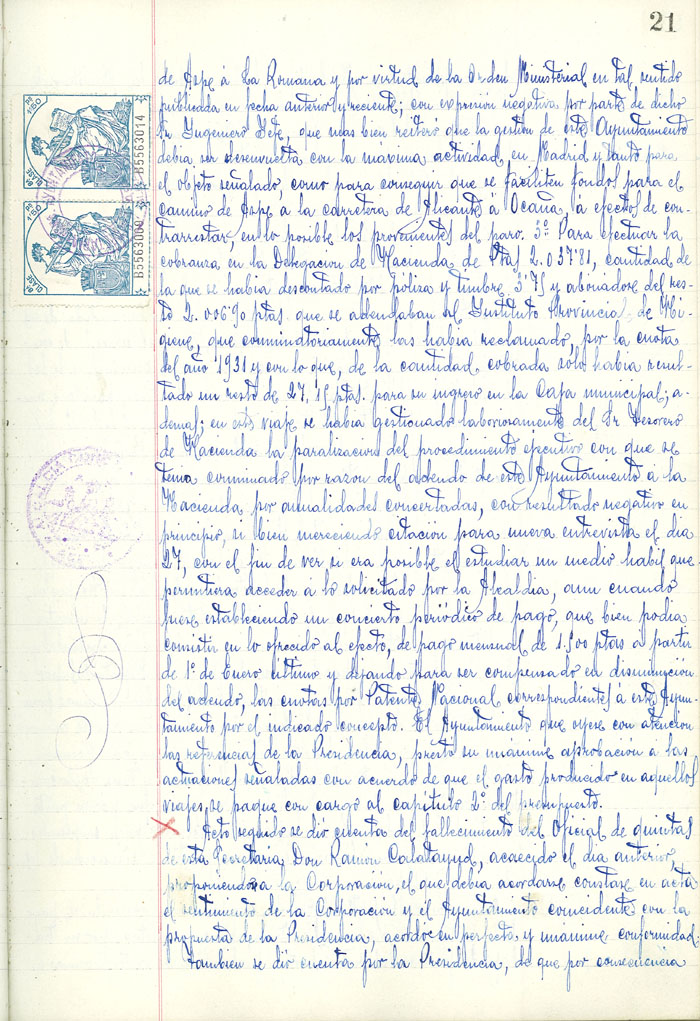 21
de Aspe á La Romana y por virtud de la Orden Ministerial en tal sentido
publicada en fecha anterior y reciente; con expresión negativa por parte de dicho
Sr Yngeniero Jefe, que mas bien reiteró que la gestion de este Ayuntamiento
debia ser desenvuelta con la máxima actividad, en Madrid y tanto para
el objeto señalado, como para conseguir que se faciliten fondos para el
camino de Aspe á la carretera de Alicante á Ocaña, á efectos de con-
trarrestar, en lo posible los provenientes del paro. 3º Para efectuar la
cobranza en la Delegacion de Hacienda de Ptas 2.037'81, cantidad de
la que se habia descontado por póliza y timbre, 3'75 y abonadose del res-
to 2.006'90 ptas. que se adeudaban al Ynstituto Provincial de Hi-
giene, que conminatoriamente las habia reclamado, por la cuota
del año 1931 y con lo que, de la cantidad cobrada solo habia resul-
tado un resto de 27,15 ptas. para su ingreso en la Caja municipal; a-
demas; en este viaje se habia gestionado laboriosamente del Sr Tesorero
de Hacienda la paralizacion del procedimiento ejecutivo con que se
tenia conminado por razon del adeudo de este Ayuntamiento á la
Hacienda por anualidades concertadas, con resultado negativo en
principio, si bien mereciendo citacion para nueva entrevista el dia
27, con el fin de ver si era posible el estudiar un medio habil que
permitiera acceder á lo solicitado por la Alcaldia, aun cuando
fuese estableciendo un concierto periódico de pago, que bien podia
consistir en lo ofrecido al efecto, de pago mensual de 1.500 ptas a partir
de 1º de Enero último y dejando para ser compensado en disminucion
del adeudo, las cuotas por Patente Nacional correspondientes á este Ayun-
tamiento por el indicado concepto. El Ayuntamiento que oyese con atencion
las referencias de la Presidencia, prestó su unánime aprobacion á las
actuaciones señaladas con acuerdo de que el gasto producido en aquellos
viajes, se pague con cargo al capítulo 2º del presupuesto.
Acto seguido se dió cuenta del fallecimiento del Oficial de quintas
de esta Secretaria Don Ramon Calatayud, acaecido el dia anterior,
proponiendose a la Corporacion, el que debia acordarse constase en acta
el sentimiento de la Corporacion y el Ayuntamiento coincidente con la
propuesta de la Presidencia, acordó en perfecta y unánime conformidad.
Tambien se dió cuenta por la Presidencia, de que por consecuencia
PS 1'50
8ª CLASE
B5563014
PS 1'50
8ª CLASE